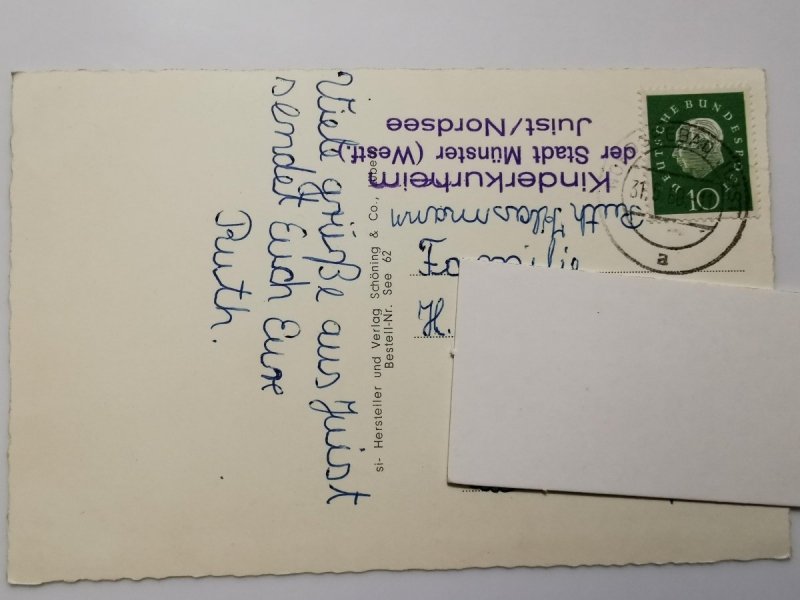 Viele grüße aus Juist
sendet Euch Eure
Ruth.
si- Hersteller und Verlag Schöning & Co.,
Bestell-Nr. See 62
Kinderkurheim
der Stadt Münster (Westf.)
Juist/Nordsee
Ruth
H.
DEUTSCHE BUNDESPOST
10
31.
60
a